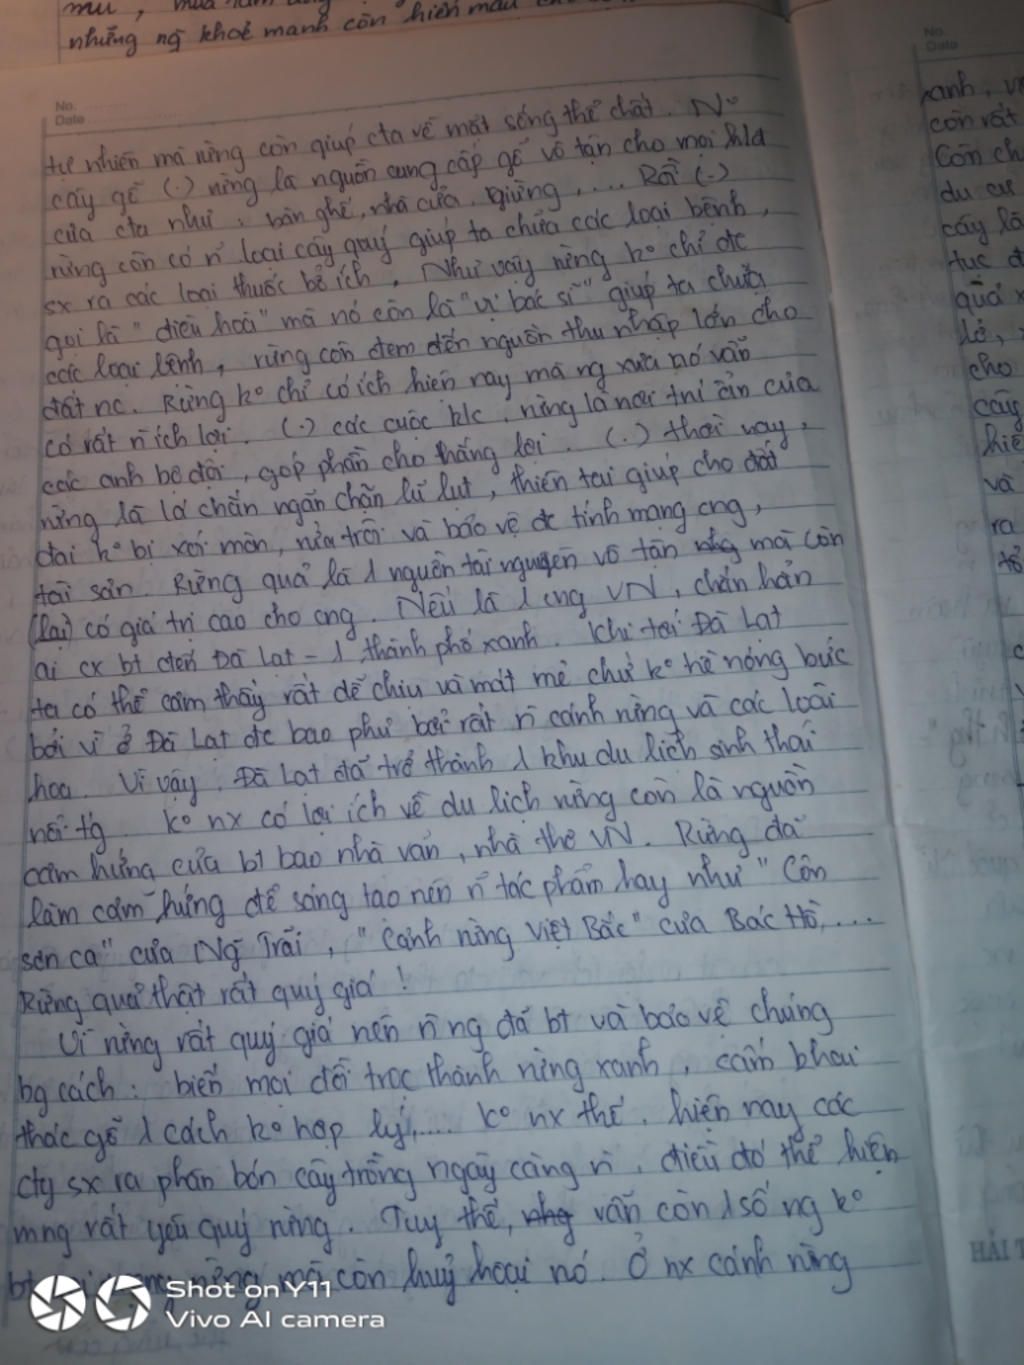 những ng khoẻ mạnh còn hiến máu
No.
Date
tự nhiên mà rừng còn giúp cta về mặt sống thể chất. N°
cây gỗ (.) rừng là nguồn cung cấp gỗ vô tận cho mọi
của cta như: bàn ghế, nhà cửa, giường, .... Rồi (.)
rừng còn có n̄ loại cây quý giúp ta chữa các loại bệnh,
sx ra các loại thuốc bổ ích. Như vậy rừng k° chỉ đc
gọi là "điều hoà" mà nó còn là "vị bác sĩ" giúp ta chữa
các loại bệnh, rừng còn đem đến nguồn thu nhập lớn cho
đất nc. Rừng k° chỉ có ích hiện nay mà ng xưa nó vẫn
có rất n̄ ích lợi. (.) các cuộc k/c, rừng là nơi trú ẩn của
các anh bộ đội, góp phần cho thắng lợi. (.) thời nay,
rừng là lá chắn ngăn chặn lũ lụt, thiên tai giúp cho đất
đai k° bị xói mòn, rửa trôi và bảo vệ đc tính mạng cng,
tài sản. Rừng quả là 1 nguồn tài nguyên vô tận mà còn
(lại) có giá trị cao cho cng. Nếu là 1 cng VN, chắn hẳn
ai cx bt đến Đà Lạt - 1 thành phố xanh. Khi tới Đà Lạt
ta có thể cảm thấy rất dễ chịu và mát mẻ chứ k° hề nóng bức
bởi vì ở Đà Lạt đc bao phủ bởi rất n̄ cánh rừng và các loài
hoa. Vì vậy, Đà Lạt đã trở thành 1 khu du lịch sinh thái
nổi tg. k° nx có lợi ích về du lịch rừng còn là nguồn
cảm hứng của bt bao nhà văn, nhà thơ VN. Rừng đã
làm cảm hứng để sáng tạo nên n̄ tác phẩm hay như "Côn
sơn ca" của Ng Trãi, "Cảnh rừng Việt Bắc" của Bác Hồ,...
Rừng quả thật rất quý giá!
Vì rừng rất quý giá nên n̄ ng đã bt và bảo vệ chúng
bg cách: biến mọi đồi trọc thành rừng xanh, cấm khai
thác gỗ 1 cách k° hợp lý,.... k° nx thế, hiện nay các
cty sx ra phân bón cây trồng ngày càng n̄, điều đó thể hiện
mng rất yêu quý rừng. Tuy thế, vẫn còn 1 số ng k°
rừng mà còn huỷ hoại nó. Ở nx cánh rừng
No.
Date
xanh,
còn rất
Còn
du cư
cây
tục
quá
lở,
cho
cây
và
ra
HẢI
Shot on Y11
Vivo AI camera